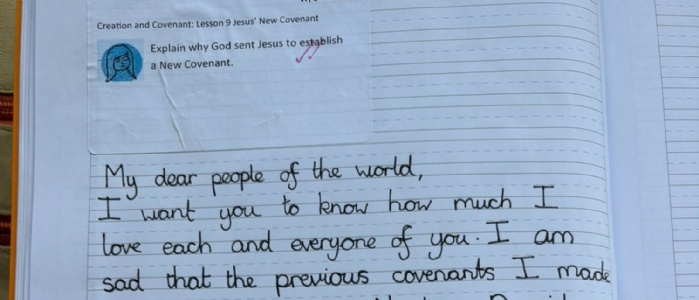 Creation and Covenant: Lesson 9 Jesus' New Covenant
Explain why God sent Jesus to establish
a New Covenant.
My dear people of the world,
I want you to know how much I
love each and everyone of you. I am
sad that the previous covenants I made